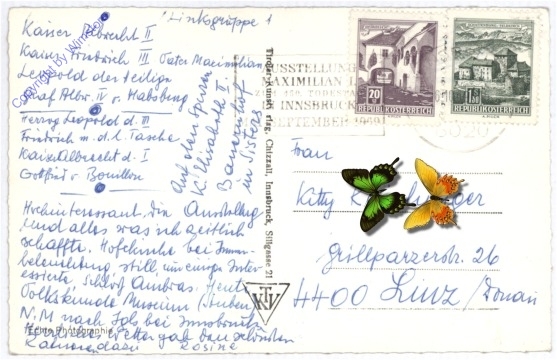 Linksgruppe 1
Kaiser Albrecht II
Kaiser Friedrich III Vater Maximilian
Leopold der Heilige
Graf Albr. IV v. Habsburg
Herzog Leopold d. III
Friedrich m. d. l. Tasche
Kaiser Albrecht d. I
Gottfried v. Bouillon
Copyright by
Auf den Spuren
K. Elisabeth II.
Bauernhof
in Sistrans
Hochinteressant die Ausstellung
und alles was ich zeitlich
schaffte. Hofkirche bei Innen-
beleuchtung, still um einige Inter-
essierte, Schloß Ambras. Heute
Volkskunde Museum (Stuben)
N.M nach Igls bei Innsbruck
Echte Photographie
Rosine
Tiroler Kunstverlag Chizzali, Innsbruck, Sillgasse 21
KTV
AUSSTELLUNG
MAXIMILIAN I
INNSBRUCK
SEPTEMBER 1969
6020
20
REPUBLIK ÖSTERREICH
1.50
REPUBLIK ÖSTERREICH
Frau
Kitty
Grillparzerstr. 26
4400 Linz/Donau